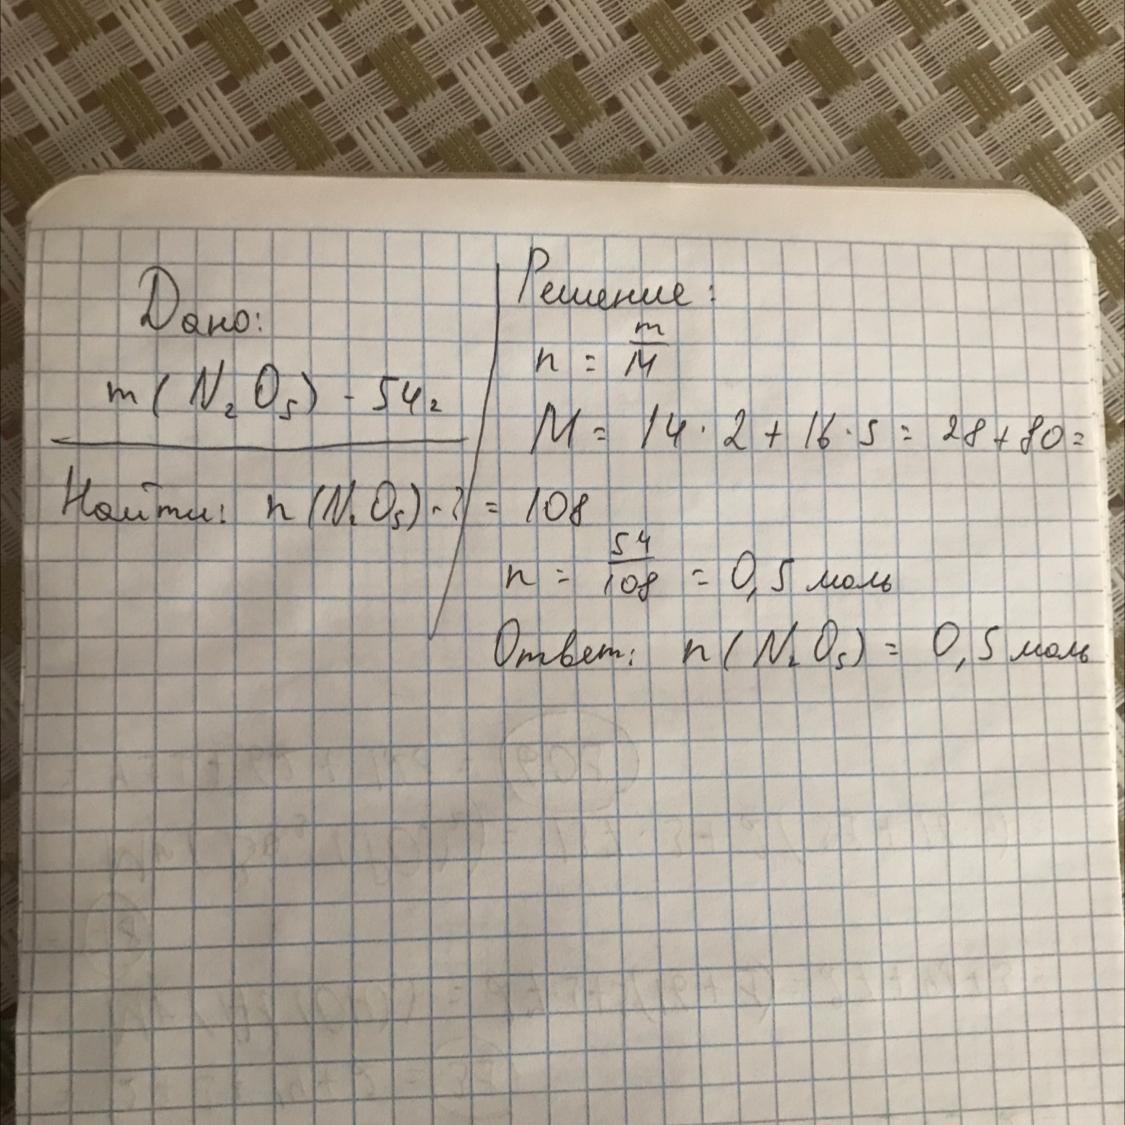 Дано:
m(N₂O₅) - 54г
Найти: n(N₂O₅) - ?
Решение:
n = m/M
M = 14·2 + 16·5 = 28 + 80 =
= 108
n = 54/108 = 0,5 моль
Ответ: n(N₂O₅) = 0,5 моль